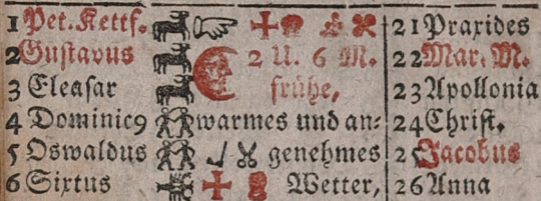 1 Pet. Kettf. 21 Praxides
2 Gustavus 2 U. 6 M. 22 Mar. M.
3 Eleasar frühe, 23 Apollonia
4 Dominic9 warmes und an- 24 Christ.
5 Oswaldus genehmes 25 Jacobus
6 Sixtus Wetter, 26 Anna